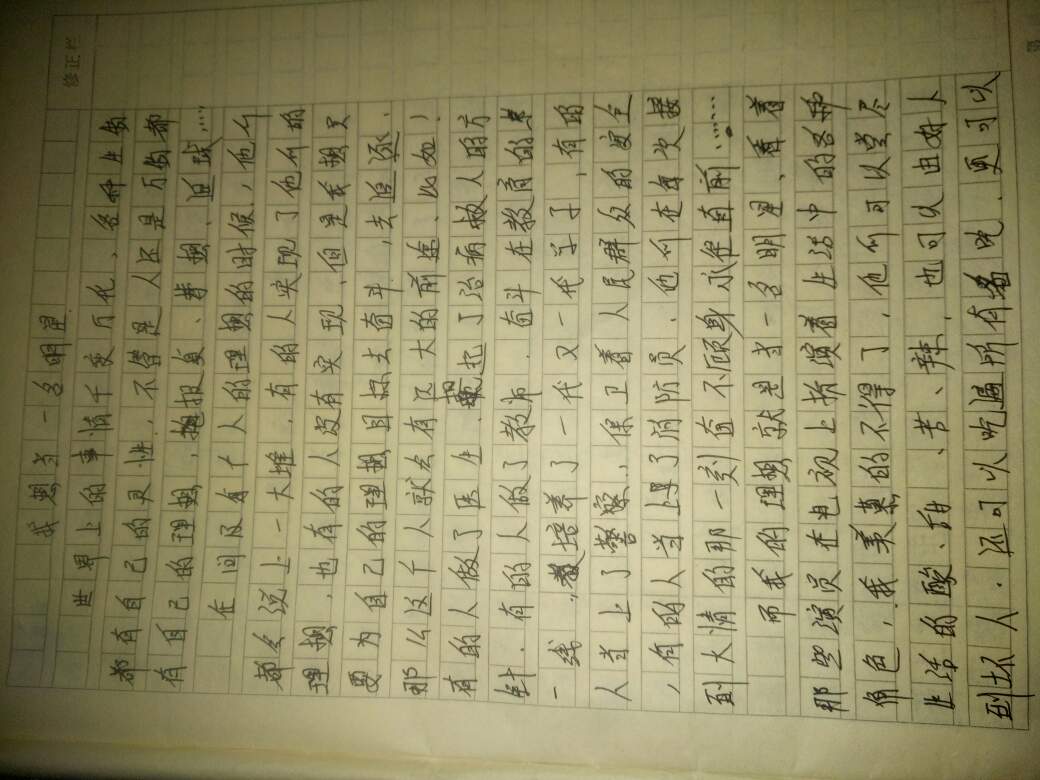 我想当一名明星
世界上的事情千变万化，各种生物
都有自己的灵性，不管是人还是万物都
有自己的理想，抱负、梦想、追求……
在问及每个人的理想的时候，他们
都会说上一大堆，有的人实现了他们的
理想，也有的人没有实现，但是我想只
要为自己的理想目标去奋斗，去追逐，
那么这个人就会有远大的前途，比如！
有的人做了医生，担起了治病救人的方
针，有的人做了教师，奋斗在教育的
一线，培养了一代又一代学子，有的
人当上了警察，保卫着人民群众的安全
，有的人当上了消防员，他们在每次接
到大情的那一刻奋不顾身永往直前……
而我的理想就是当一名明星，看着
那些演员在电视上扮演着生活中的各种
角色，我羡慕的不得了，他们可以尝尽
生活的酸、甜、苦、辣，也可以由好人
到坏人，还可以吃遍所有
修正栏